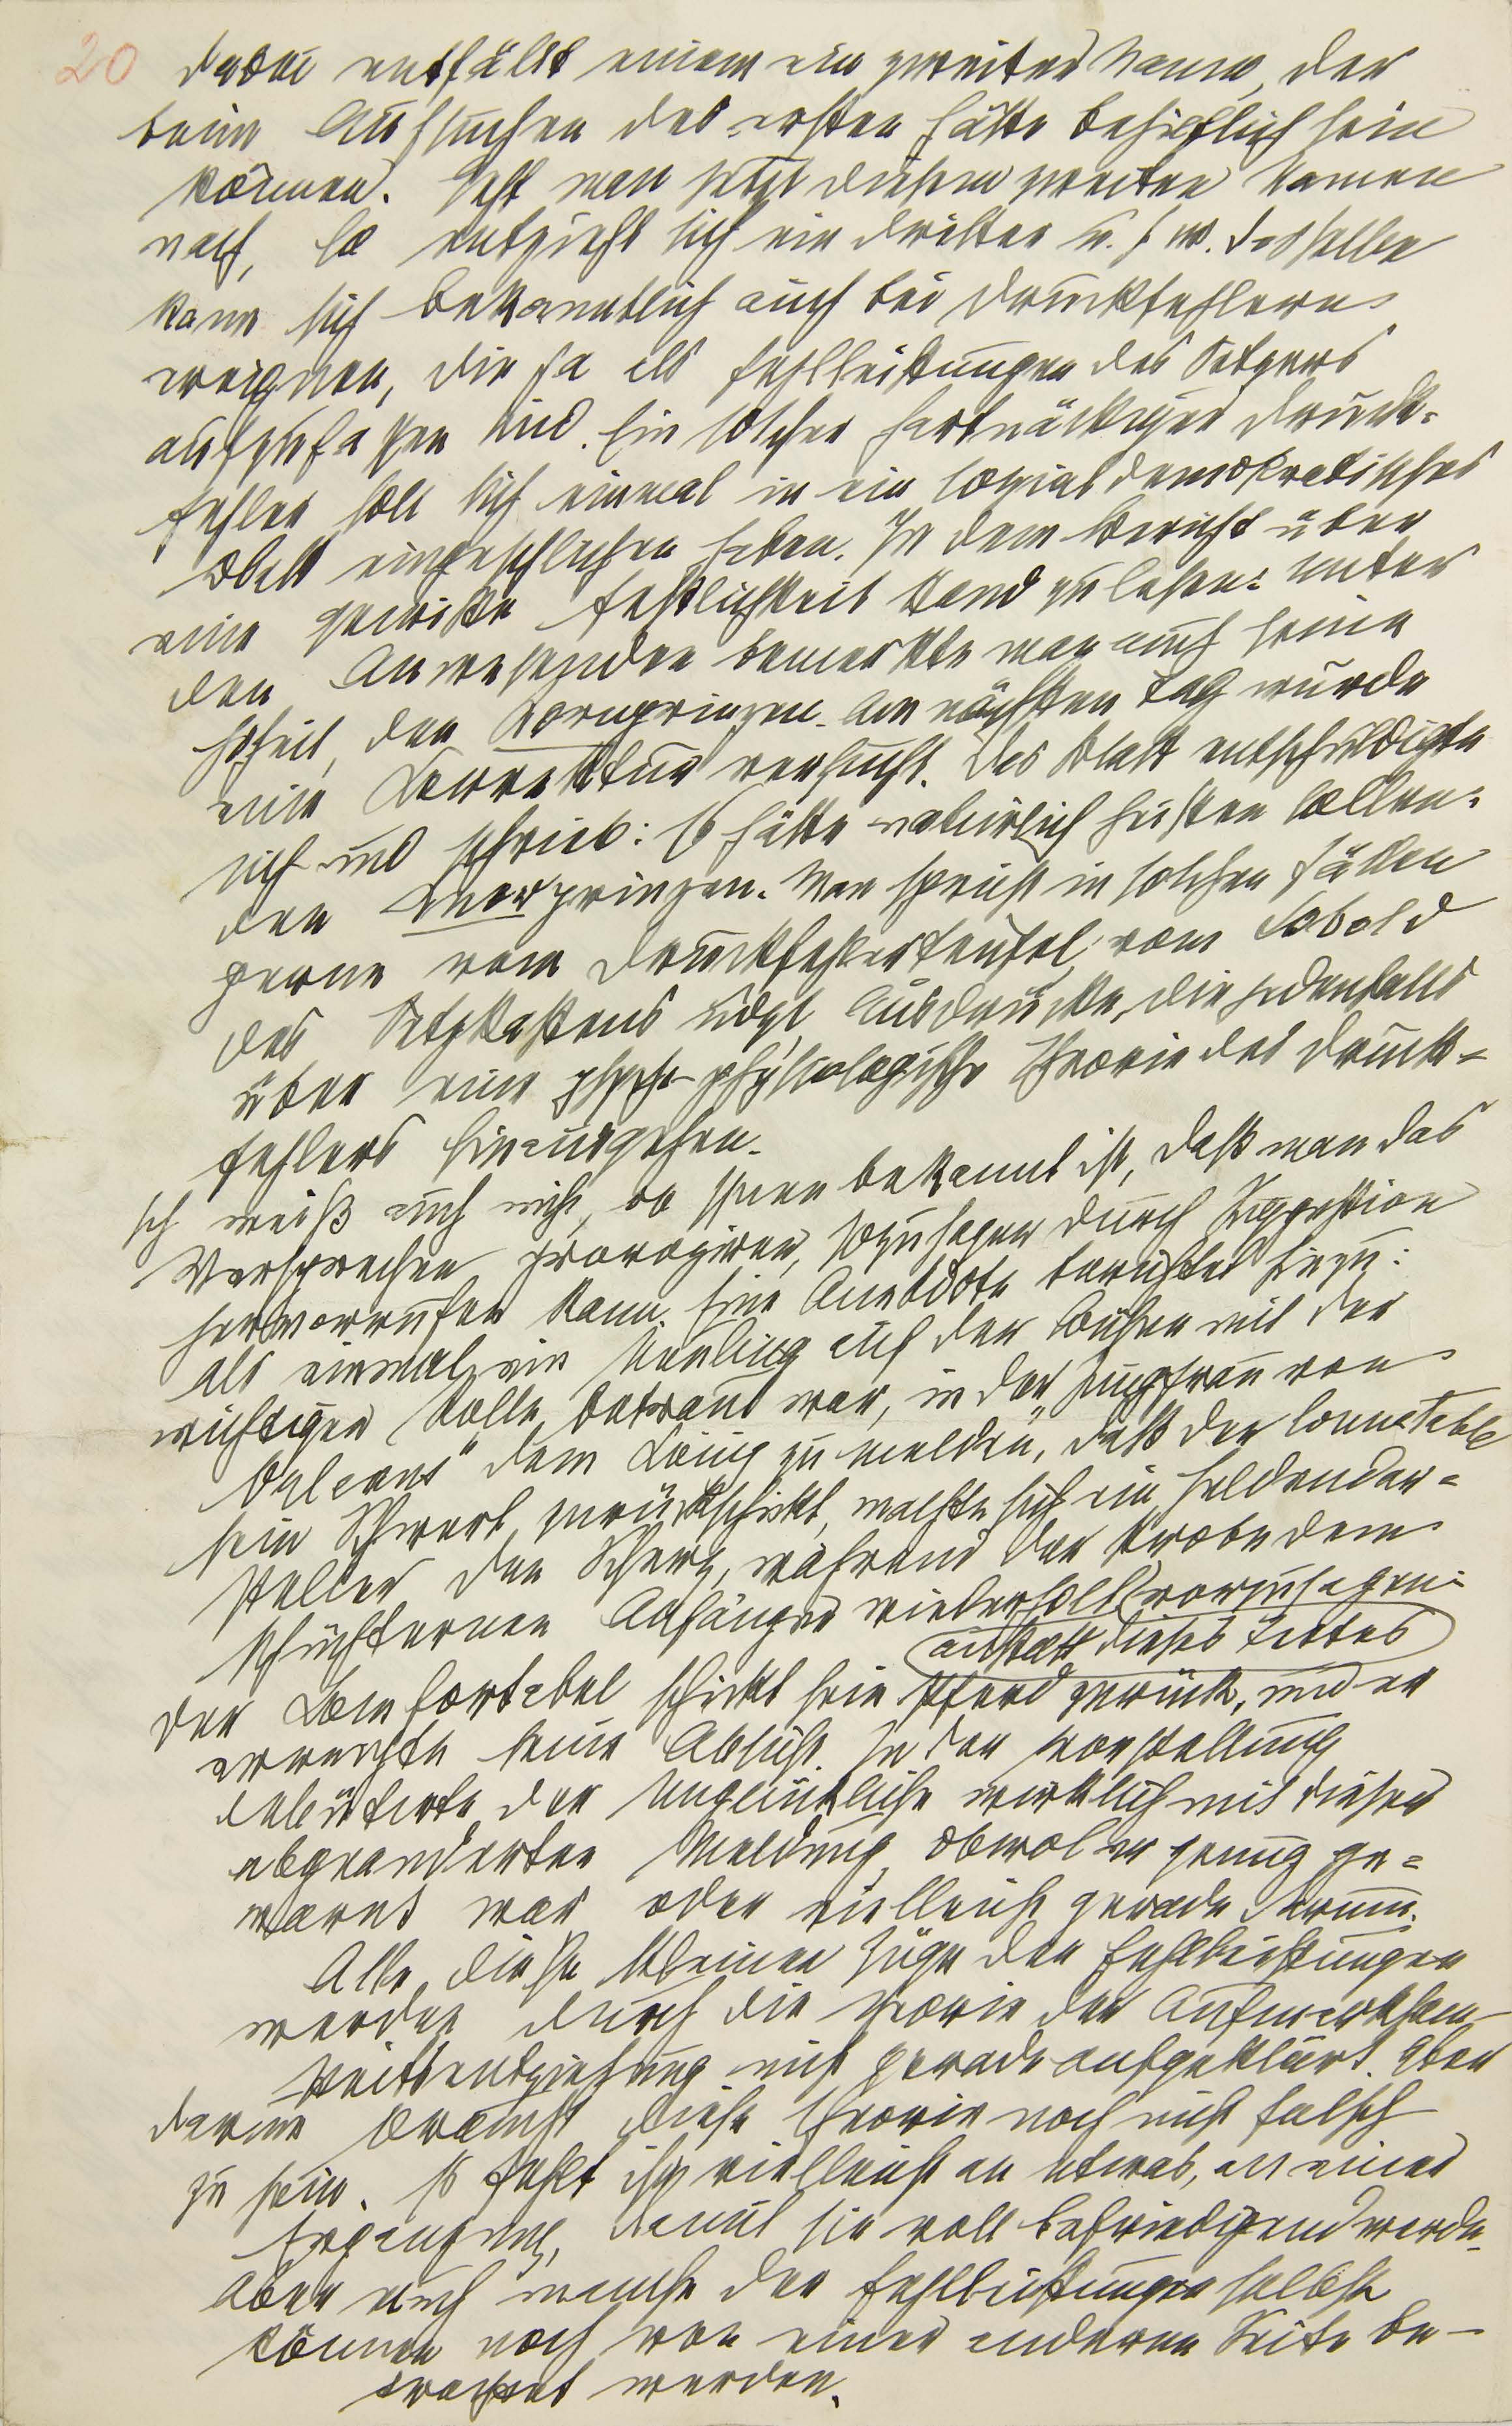 20
davon entfällt einem ein zweiter Name, der
beim Aufsuchen des ersten hätte behilflich sein
können. Geht man jetzt diesem zweiten Namen
nach, so entzieht sich ein dritter u. s. w. Dasselbe
kann sich bekanntlich auch bei Druckfehlern
ereignen, die ja als Fehlleistungen des Setzers
aufzufassen sind. Ein solcher hartnäckiger Druck-
fehler soll sich einmal in ein sozialdemokratisches
Blatt eingeschlichen haben. In dem Bericht über
eine gewisse Festlichkeit stand zu lesen: unter
den Anwesenden bemerkte man auch seine
Hoheit, den Kornprinzen. Am nächsten Tag wurde
eine Korrektur versucht. Das Blatt entschuldigte
sich und schrieb: Es hätte natürlich heißen sollen:
den Knorprinzen. Man spricht in solchen Fällen
gerne vom Druckfehlerteufel, vom Kobold
des Setzkastens udgl, Ausdrücke, die jedenfalls
über eine psycho-physiologische Theorie des Druck-
fehlers hinausgehen.
Ich weiß auch nicht, ob Ihnen bekannt ist, daß man das
Versprechen provoziren, sozusagen durch Suggestion
hervorrufen kann. Eine Anekdote berichtet hiezu:
als einmal ein Neuling auf der Bühne mit der
wichtigen Rolle betraut war, in der „Jungfrau von
Orleans" dem König zu melden, daß der Connétable
sein Schwert zurückschickt, machte sich ein Heldendar-
steller den Scherz, während der Probe dem
schüchternen Anfänger wiederholt vorzusagen:
anstatt dieses Textes
der Komfortabel schickt sein Pferd zurück, und er
erreichte seine Absicht. In der Vorstellung
debütirte der Unglückliche wirklich mit dieser
abgeänderten Meldung, obwol er genug ge-
warnt war oder vielleicht gerade darum.
Alle diese kleinen Züge der Fehlleistungen
werden durch die Theorie der Aufmerksam-
keitsentziehung nicht gerade aufgeklärt. Aber
darum braucht diese Theorie noch nicht falsch
zu sein. Es fehlt ihr vielleicht an etwas, an einer
Ergänzung, damit sie voll befriedigend werde.
Aber auch manche der Fehlleistungen selbst
können noch von einer anderen Seite be-
trachtet werden.